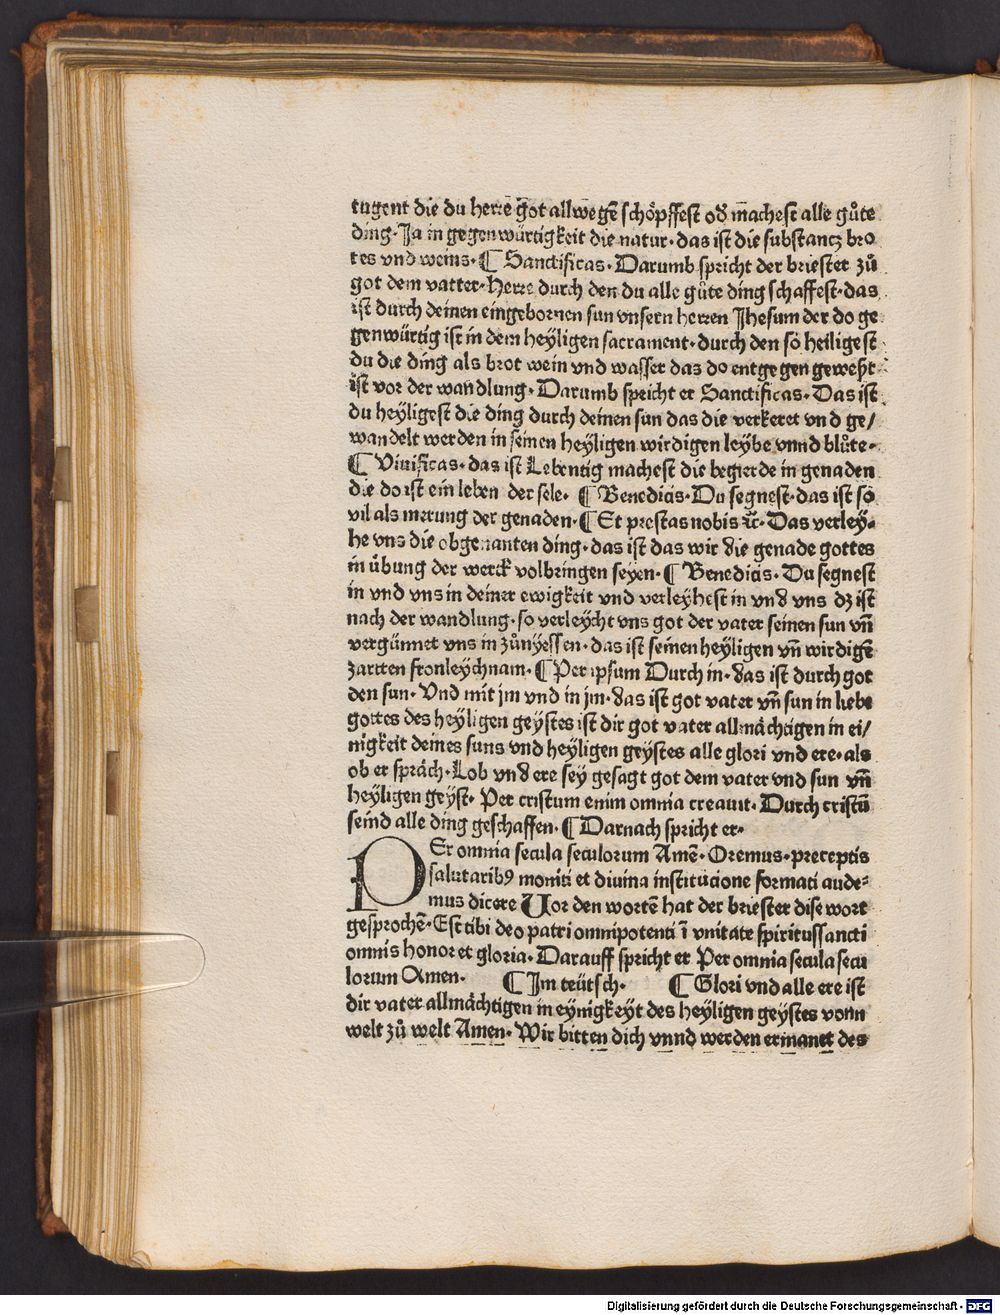 tugent die du herre got allwegē schöpffest od̕ machest alle gůte
ding. Ja in gegenwürtigkeit die natur. das ist die substancz bro
tes vnd weins. ¶ Sanctificas. Darumb spricht der briester zů
got dem vatter. Herre durch den du alle gůte ding schaffest. das
ist durch deinen eingebornen sun vnsern herren Jhesum der do ge
genwürtig ist in dem heyligen sacrament. durch den so heiligest
du die ding als brot wein vnd wasser daz do entgegen geweßt
ist vor der wandlung. Darumb spricht er Sanctificas. Das ist
du heyligest die ding durch deinen sun das die verkeret vnd ge/
wandelt werden in seinen heyligen wirdigen leybe vnnd blůte.
¶ Viuificas. das ist Lebentig machest die begierde in genaden
die do ist ein leben der sele. ¶ Benedicis. Du segnest. das ist so
vil als merung der genaden. ¶ Et prestas nobis ꝛc. Das verley-
he vns die obgenanten ding. das ist das wir die genade gottes
in übung der werck volbringen seyen. ¶ Benedicis. Du segnest
in vnd vns in deiner ewigkeit vnd verleyhest in vnd vns dz ist
nach der wandlung. so verleycht vns got der vater seinen sun vn̄
vergünnet vns in zůnyessen. das ist seinen heyligen vn̄ wirdigē
zartten fronleychnam. ¶ Per ipsum Durch in. das ist durch got
den sun. Vnd mit jm vnd in jm. das ist got vater vn̄ sun in liebe
gottes des heyligen geystes ist dir got vater allmächtigen in ei/
nigkeit deines suns vnd heyligen geystes alle glori vnd ere. als
ob er spräch. Lob vnd ere sey gesagt got dem vater vnd sun vn̄
heyligen geyst. Per cristum enim omnia creauit. Durch cristū
seind alle ding geschaffen. ¶ Darnach spricht er.
PEr omnia secula seculorum Amē. Oremus. preceptis
salutaribꝰ moniti et diuina institucione formati aude-
mus dicere Vor den wortē hat der briester dise wort
gesprochē. Est tibi deo patri omnipotenti ī vnitate spiritussancti
omnis honor et gloria. Darauff spricht er Per omnia secula secu
lorum Amen. ¶ Im teütsch. ¶ Glori vnd alle ere ist
dir vater allmächtigen in eynigkeyt des heyligen geystes vonn
welt zů welt Amen. Wir bitten dich vnnd werden ermanet des
Digitalisierung gefördert durch die Deutsche Forschungsgemeinschaft - DFG